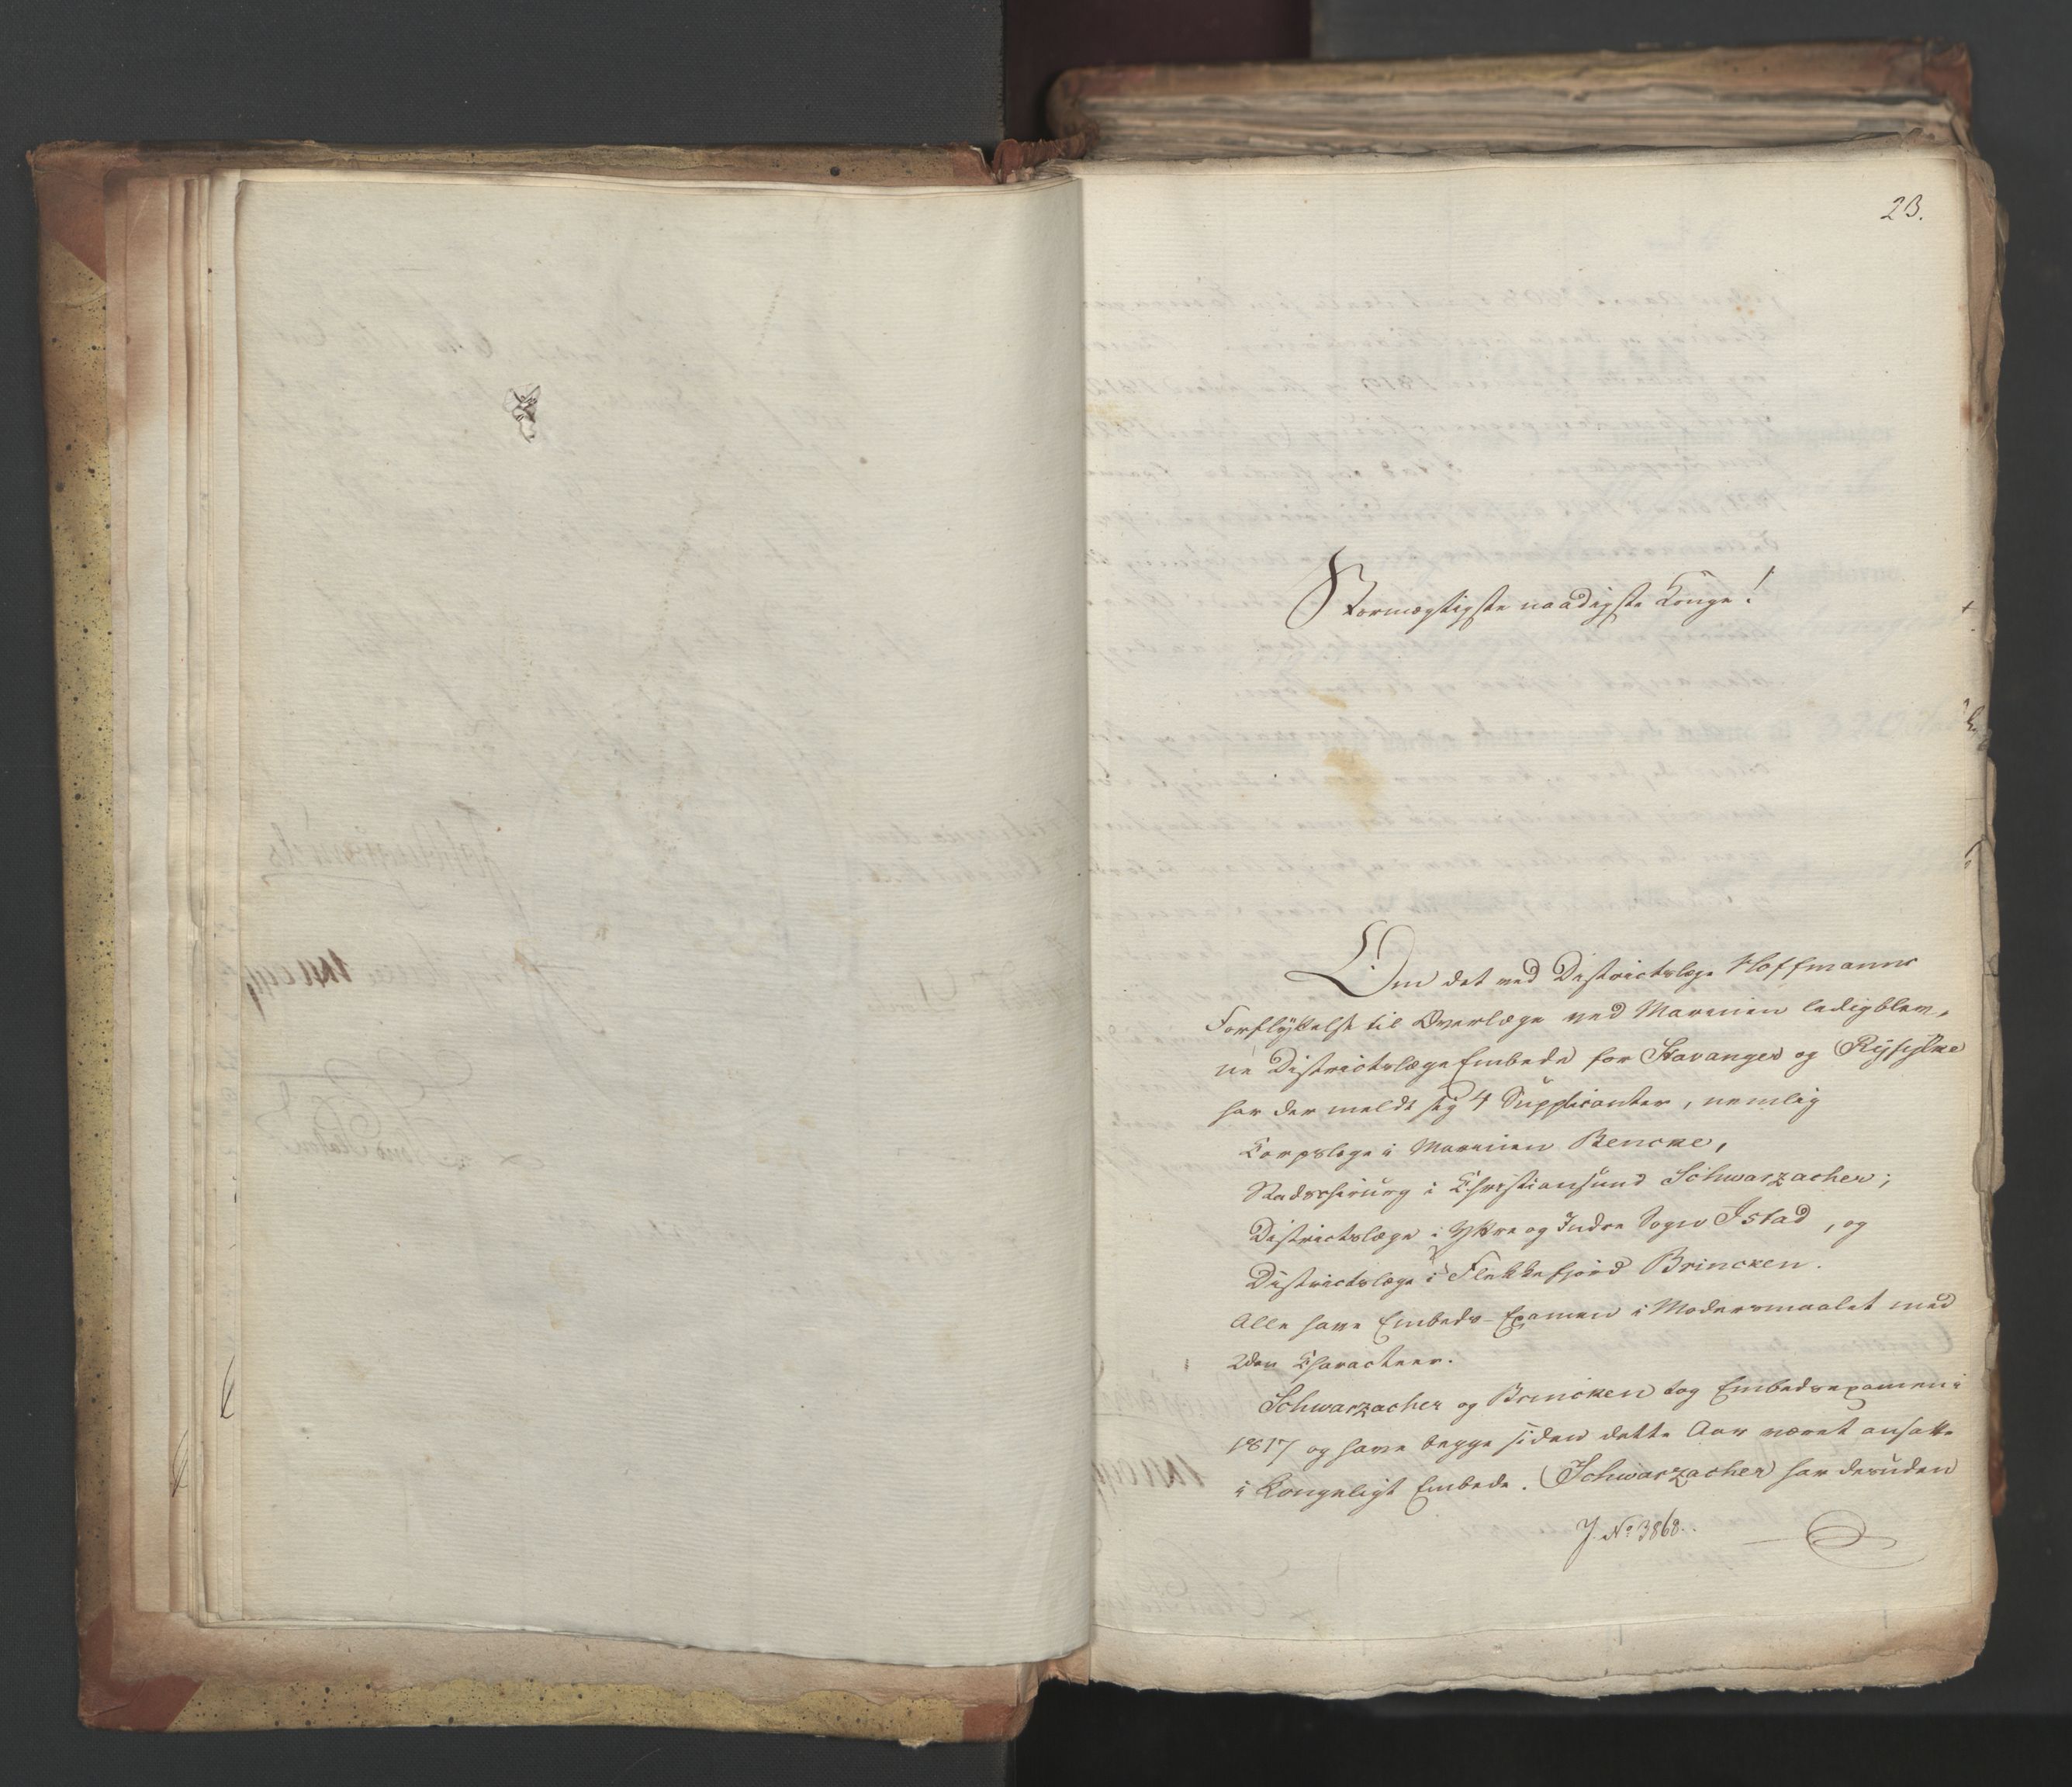 23.
Stormægtigste naadigste Konge!
Om det ved Districtslæge Hoffmanns
Forflyttelse til Overlæge ved Marinen ledigblev,
ne Districtslæge Embede for Stavanger og Ryfylke
har der meldt sig 4 Supplicanter, nemlig
Corpslæge i Marinen Bencke,
Stadschirurg i Christiansund Schwarzacher;
Districtslæge i Yttre og Indre Sogn Istad, og
Districtslæge i Flekkefjord Brincken.
Alle have Embeds-Examen i Modersmaalet med
2den Characteer.
Schwarzacher og Brincken tog Embedsexamen i
1817 og have begge siden dette Aar været ansatte
i Kongeligt Embede. Schwarzacher har desuden
J. No 3868.